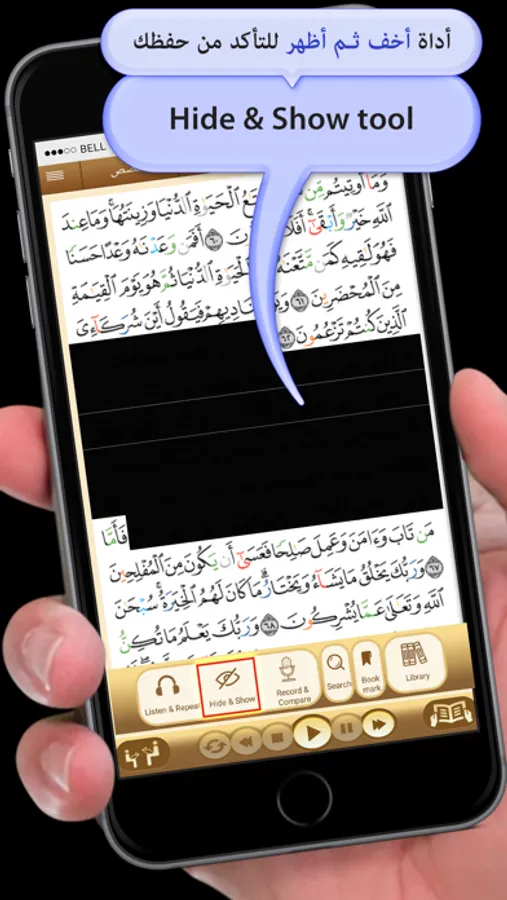 أداة أخف ثم أظهر للتأكد من حفظك
Hide & Show tool
BELL
وَمَآ أُوتِيتُم مِّن
ٱلْحَيَوٰةِ ٱلدُّنْيَا وَزِينَتُهَا ۚ وَمَا عِندَ
ٱللَّهِ خَيْرٌ وَأَبْقَىٰٓ ۚ ﴿٦٠﴾ أَفَمَن وَعَدْنَٰهُ وَعْدًا حَسَنًا
فَهُوَ لَٰقِيهِ كَمَن مَّتَّعْنَٰهُ ٱلْحَيَوٰةِ ٱلدُّنْيَا ثُمَّ هُوَ يَوْمَ ٱلْقِيَٰمَةِ
مِنَ ٱلْمُحْضَرِينَ ﴿٦١﴾ فَيَقُولُ أَيْنَ شُرَكَآءِىَ
ٱلَّذِينَ كُنتُمْ تَزْعُمُونَ ﴿٦٢﴾
فَأَمَّا
مَن تَابَ وَءَامَنَ وَعَمِلَ صَٰلِحًا فَعَسَىٰٓ أَن يَكُونَ مِنَ ٱلْمُفْلِحِينَ
﴿٦٧﴾ وَرَبُّكَ يَخْلُقُ مَا يَشَآءُ وَيَخْتَارُ ۗ مَا كَانَ لَهُمُ ٱلْخِيَرَةُ ۚ سُبْحَٰنَ
ٱللَّهِ وَتَعَٰلَىٰ عَمَّا يُشْرِكُونَ ﴿٦٨﴾ وَرَبُّكَ يَعْلَمُ مَا تُكِنُّ
Listen & Repeat
Hide & Show
Record & Compare
Search
Book mark
Library